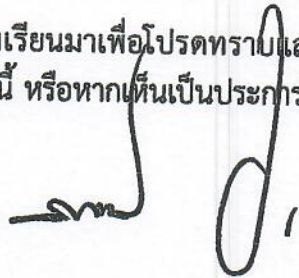 เรียนมาเพื่อโปรดทราบแล
นี้ หรือหากเห็นเป็นประการ